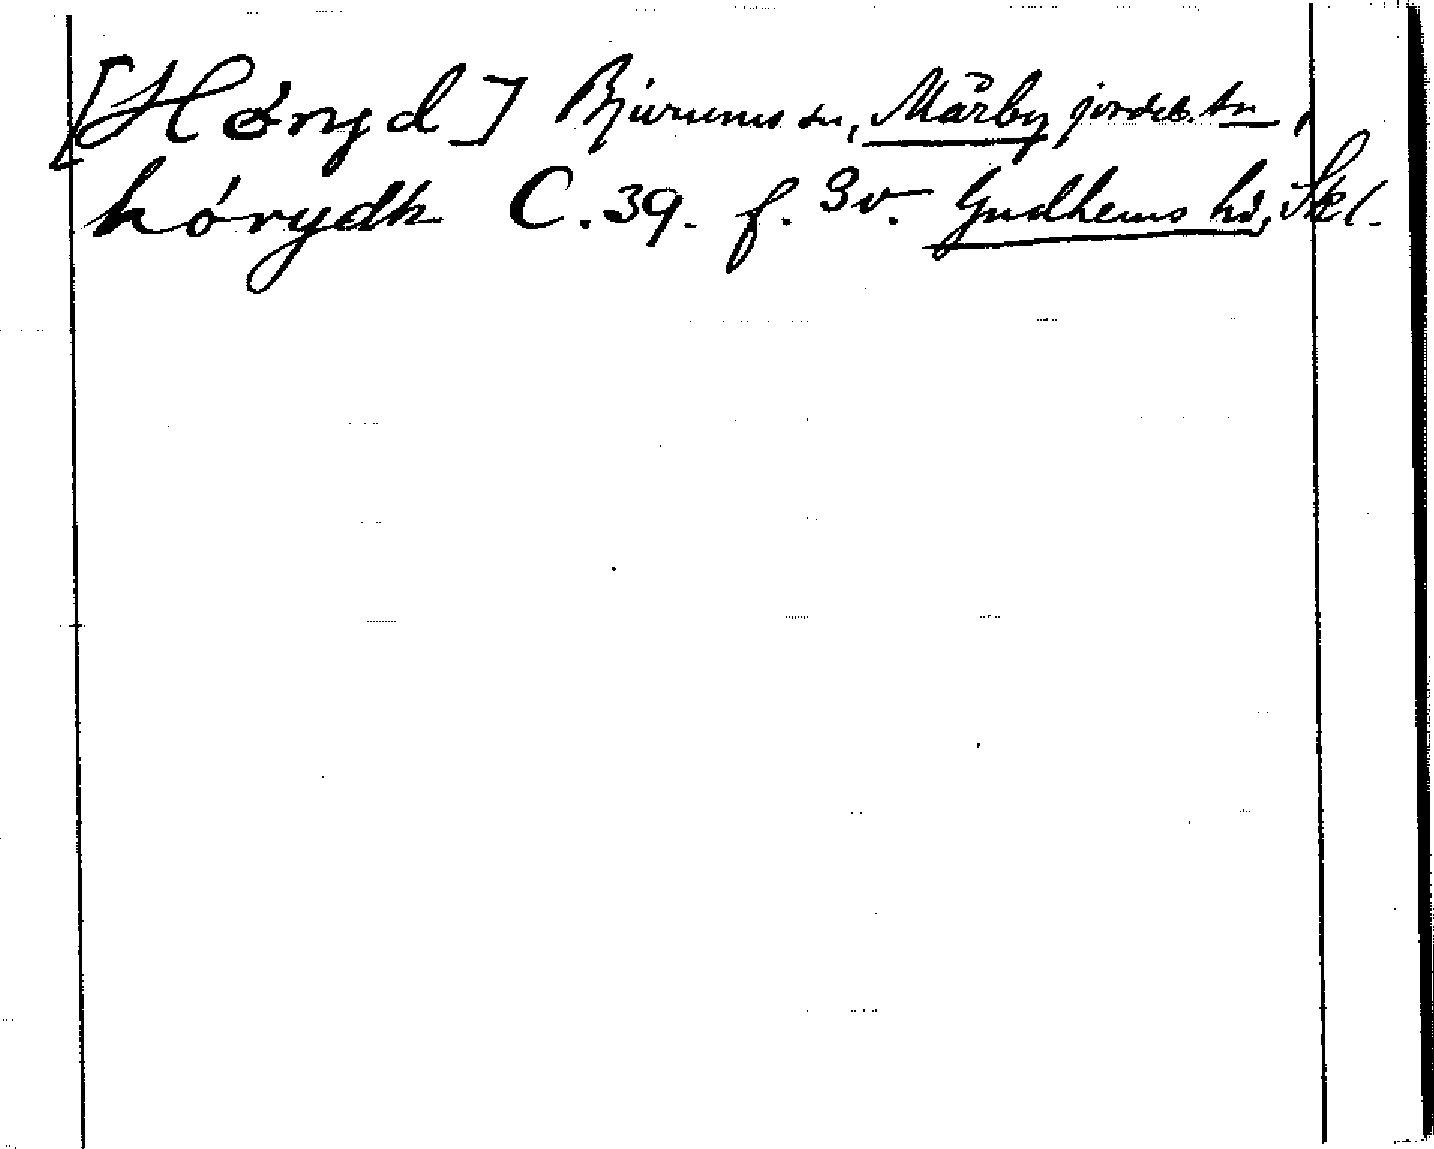 [Hóryd] Bjurums sn, Mårby jordeb. tn,
hórydh C. 39. f. 3v. Gudhems hd, Skl.